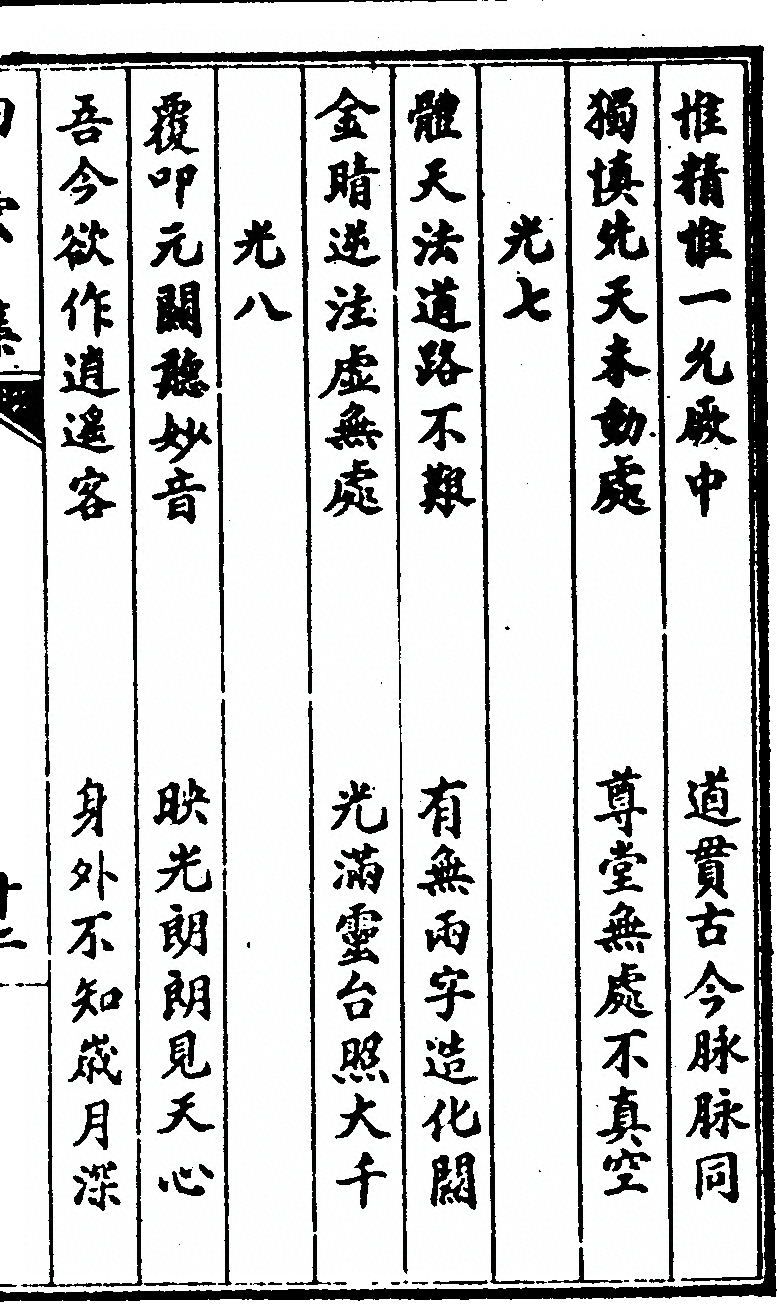 惟精惟一允厥中　道貫古今脉脉同
獨慎先天未動處　尊堂無處不真空
光七
體天法道路不艱　有無兩字造化關
金睛逆注虛無處　光滿靈台照大千
光八
覆叩元關聽妙音　映光朗朗見天心
吾今欲作逍遥客　身外不知歲月深
十二